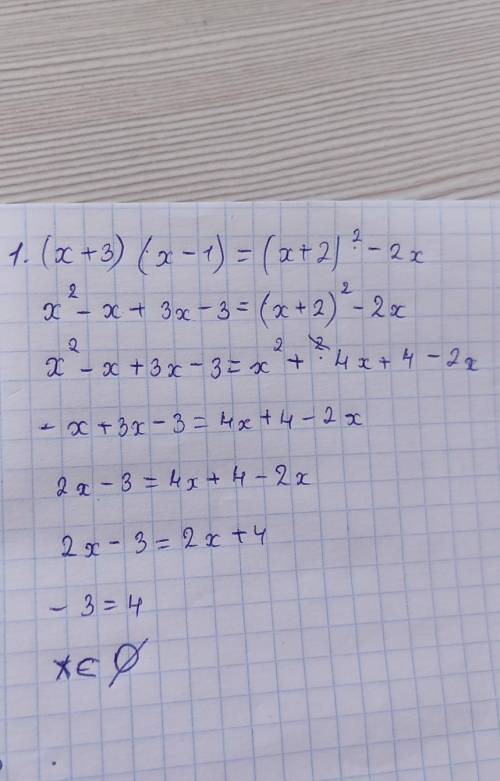 1. (x+3) (x-1) = (x+2)² - 2x
x² - x + 3x - 3 = (x+2)² - 2x
x² - x + 3x - 3 = x² + 4x + 4 - 2x
- x + 3x - 3 = 4x + 4 - 2x
2x - 3 = 4x + 4 - 2x
2x - 3 = 2x + 4
- 3 = 4
x ∈ ∅